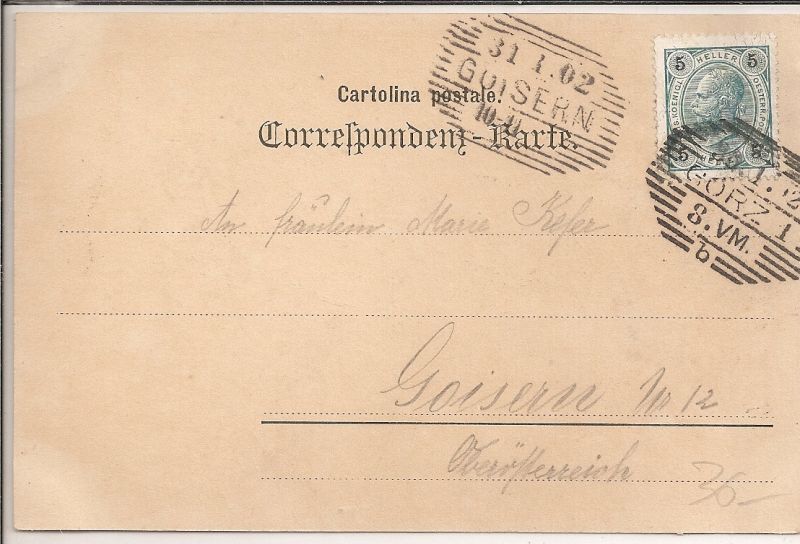 31 1.02
GOISERN
10-11
5 HELLER 5
K. KOENIGL. OESTERR. PO
5 5
Cartolina postale.
Correſpondenz-Karte.
GÖRZ 1
8.VM.
b
An fräulein Marie Kefer
Goisern No 12
Oberösterreich
36-